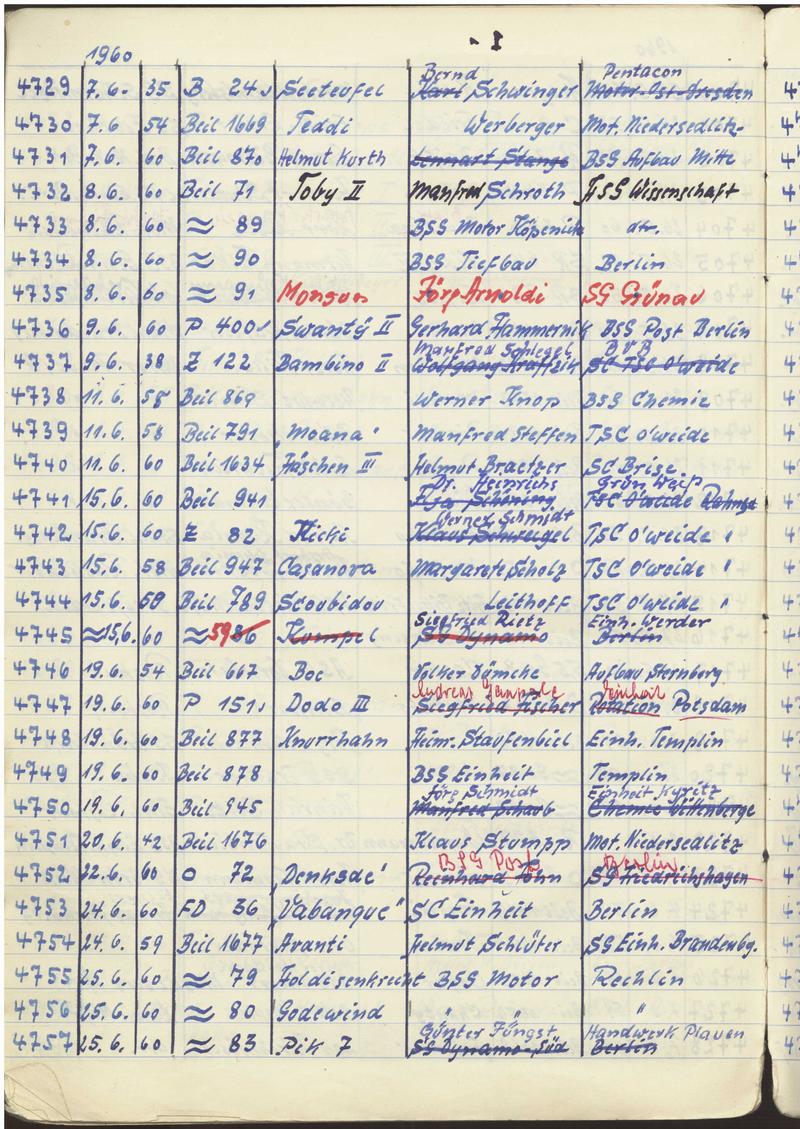 1960
4729 7.6. 35 B 24 Seeteufel Bernd Karl Schwinger Pentacon Motor-Ost-Dresden
4730 7.6 54 Beil 1669 Teddi Werberger Mot. Niedersedlitz
4731 7.6. 60 Beil 870 Helmut Kurth Lennart Stange BSG Aufbau Mitte
4732 8.6. 60 Beil 71 Toby II Manfred Schroth HSG Wissenschaft
4733 8.6. 60 ≈ 89 BSG Motor Köpenick dtr.
4734 8.6. 60 ≈ 90 BSG Tiefbau Berlin
4735 8.6. 60 ≈ 91 Monsun Jörg Arnoldi SG Grünau
4736 9.6. 60 P 400 Swantÿ II Gerhard Hammernik BSG Post Berlin
4737 9.6. 38 Z 122 Bambino II Manfred Schlegel Wolfgang BVB SC TSC O'weide
4738 11.6. 58 Beil 869 Werner Knop BSG Chemie
4739 11.6. 58 Beil 791 „Moana“ Manfred Steffen TSC O'weide
4740 11.6. 60 Beil 1634 Häschen III Helmut Braetzer SC Brise
4741 15.6. 60 Beil 941 Dr. Heinrichs Schöning Grün Weiß TSC O'weide
4742 15.6. 60 Z 82 Kicki Werner Schmidt Klaus TSC O'weide "
4743 15.6. 58 Beil 947 Casanova Margarete Scholz TSC O'weide "
4744 15.6. 59 Beil 789 Scoubidou Leithoff TSC O'weide "
4745 ≈15.6. 60 ≈ 59 86 Kumpel Siegfried Rietz SG Dynamo Einh. Werder Berlin
4746 19.6. 54 Beil 667 Boe Volker Dömcke Aufbau Sternberg
4747 19.6. 60 P 151 Dodo III Andreas Siegfried Fischer Einheit Rotation Potsdam
4748 19.6. 60 Beil 877 Knurrhahn Heinr. Staufenbiel Einh. Templin
4749 19.6. 60 Beil 878 BSG Einheit Templin
4750 19.6. 60 Beil 945 Jörg Schmidt Manfred Schaub Einheit Kyritz Chemie Wittenberge
4751 20.6. 42 Beil 1676 Klaus Stumpp Mot. Niedersedlitz
4752 22.6. 60 O 72 „Denksde“ BSG Post Reinhard John Berlin SG Friedrichshagen
4753 24.6. 60 FD 36 „Vabanque“ SC Einheit Berlin
4754 24.6. 59 Beil 1677 Avanti Helmut Schlüter SG Einh. Brandenbg.
4755 25.6. 60 ≈ 79 Holdisenkrecht BSG Motor Rechlin
4756 25.6. 60 ≈ 80 Godewind " " "
4757 25.6. 60 ≈ 83 Pik 7 Günter Jüngst SG Dynamo-Süd Handwerk Plauen Berlin